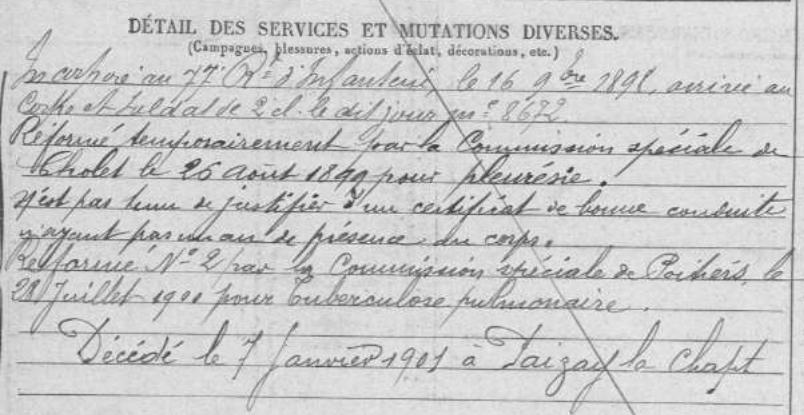 DÉTAIL DES SERVICES ET MUTATIONS DIVERSES.
(Campagnes, blessures, actions d'éclat, décorations, etc.)
Incorporé au 77e Rt d'Infanterie, le 16 9bre 1898, arrivé au
Corps et soldat de 2 cl. le dit jour mle 8672.
Réformé temporairement par la Commission spéciale de
Cholet le 26 Août 1899 pour pleurésie.
N'est pas tenu de justifier d'un certificat de bonne conduite
n'ayant pas un an de présence au corps.
Réformé N° 2 par la Commission spéciale de Poitiers, le
28 Juillet 1900 pour Tuberculose pulmonaire.
Décédé le 7 Janvier 1901 à Paizay la Chapt